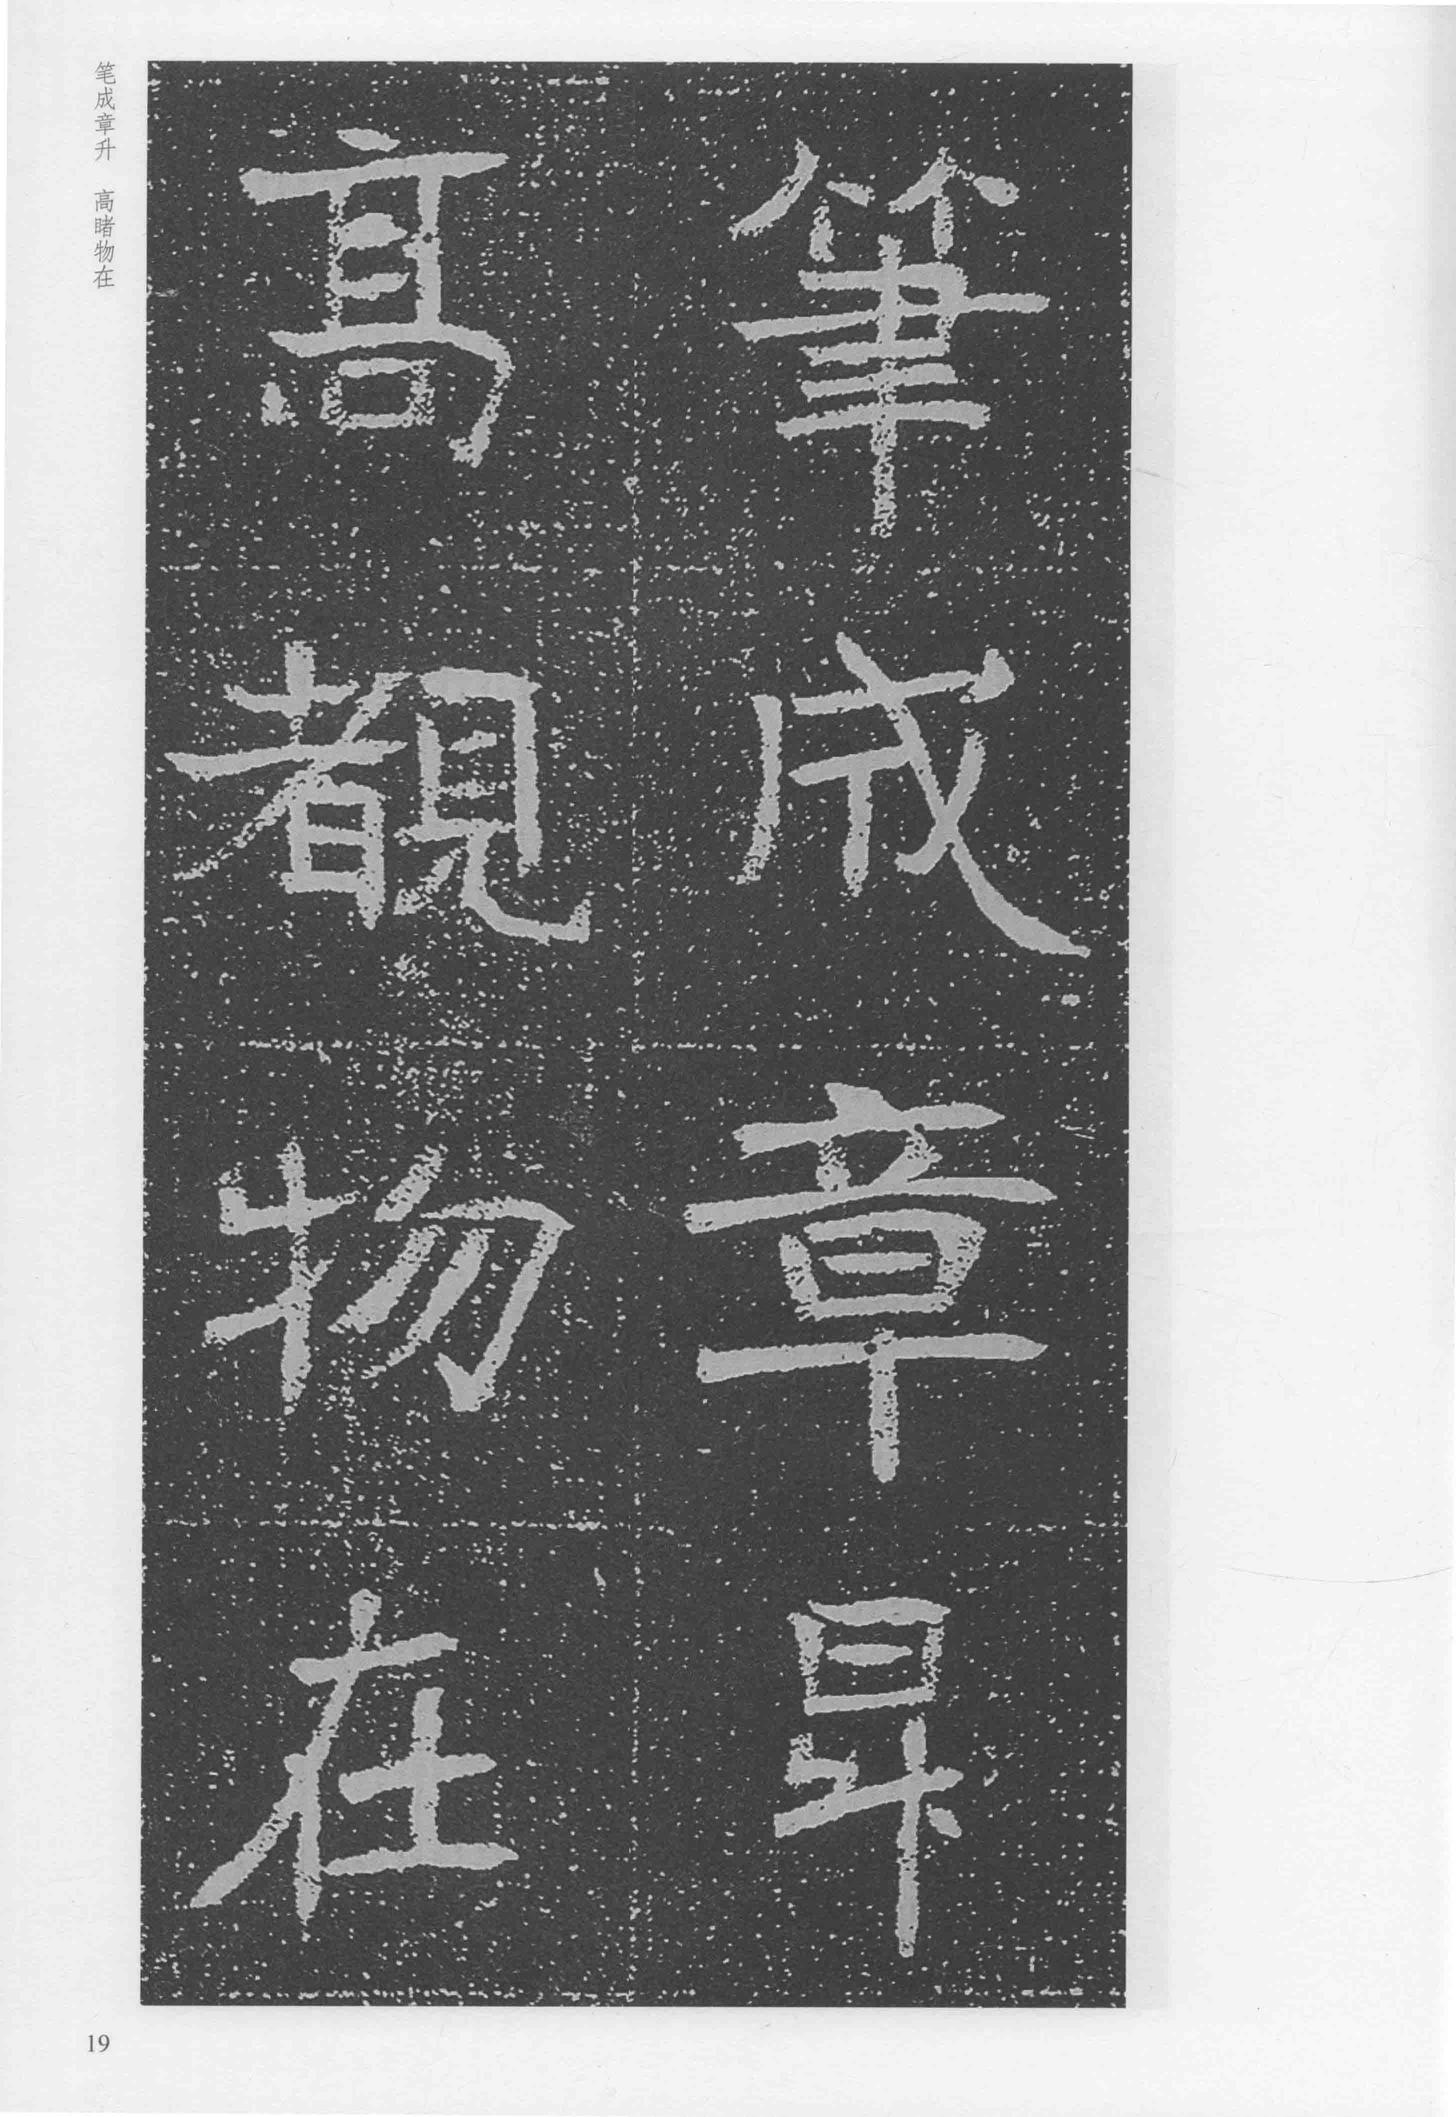 筆成章昇
高覩物在
笔成章升 高睹物在
19